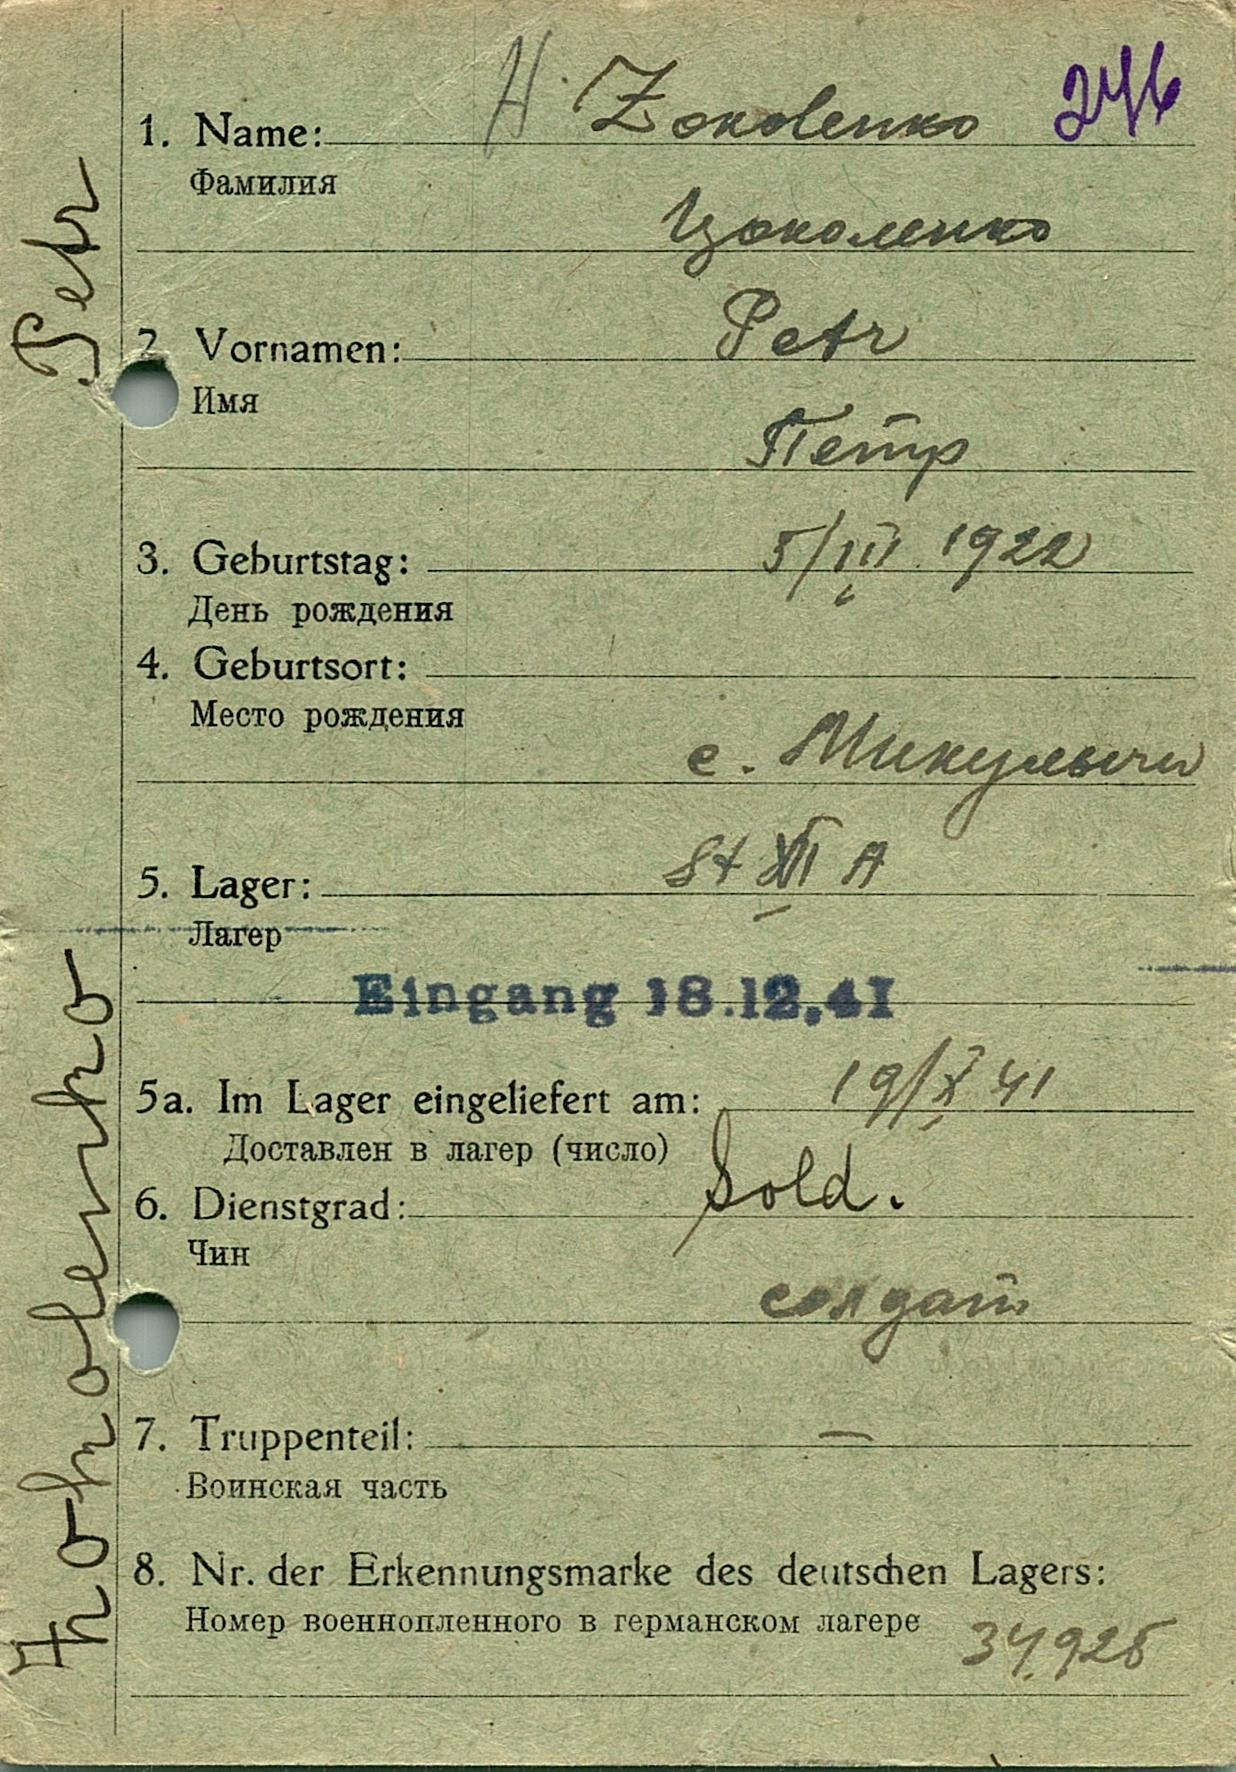 H. Zokolenko 246
1. Name:
Фамилия
Цоколенко
2. Vornamen: Petr
Имя
Петр
3. Geburtstag: 5/III 1922
День рождения
4. Geburtsort:
Место рождения
с. Микулычи
5. Lager: St XII A
Лагер
Eingang 18.12.41
5a. Im Lager eingeliefert am: 19/X 41
Доставлен в лагер (число)
6. Dienstgrad: Sold.
Чин
солдат
7. Truppenteil: —
Воинская часть
8. Nr. der Erkennungsmarke des deutschen Lagers:
Номер военнопленного в германском лагере 34925
Zokolenko Petr